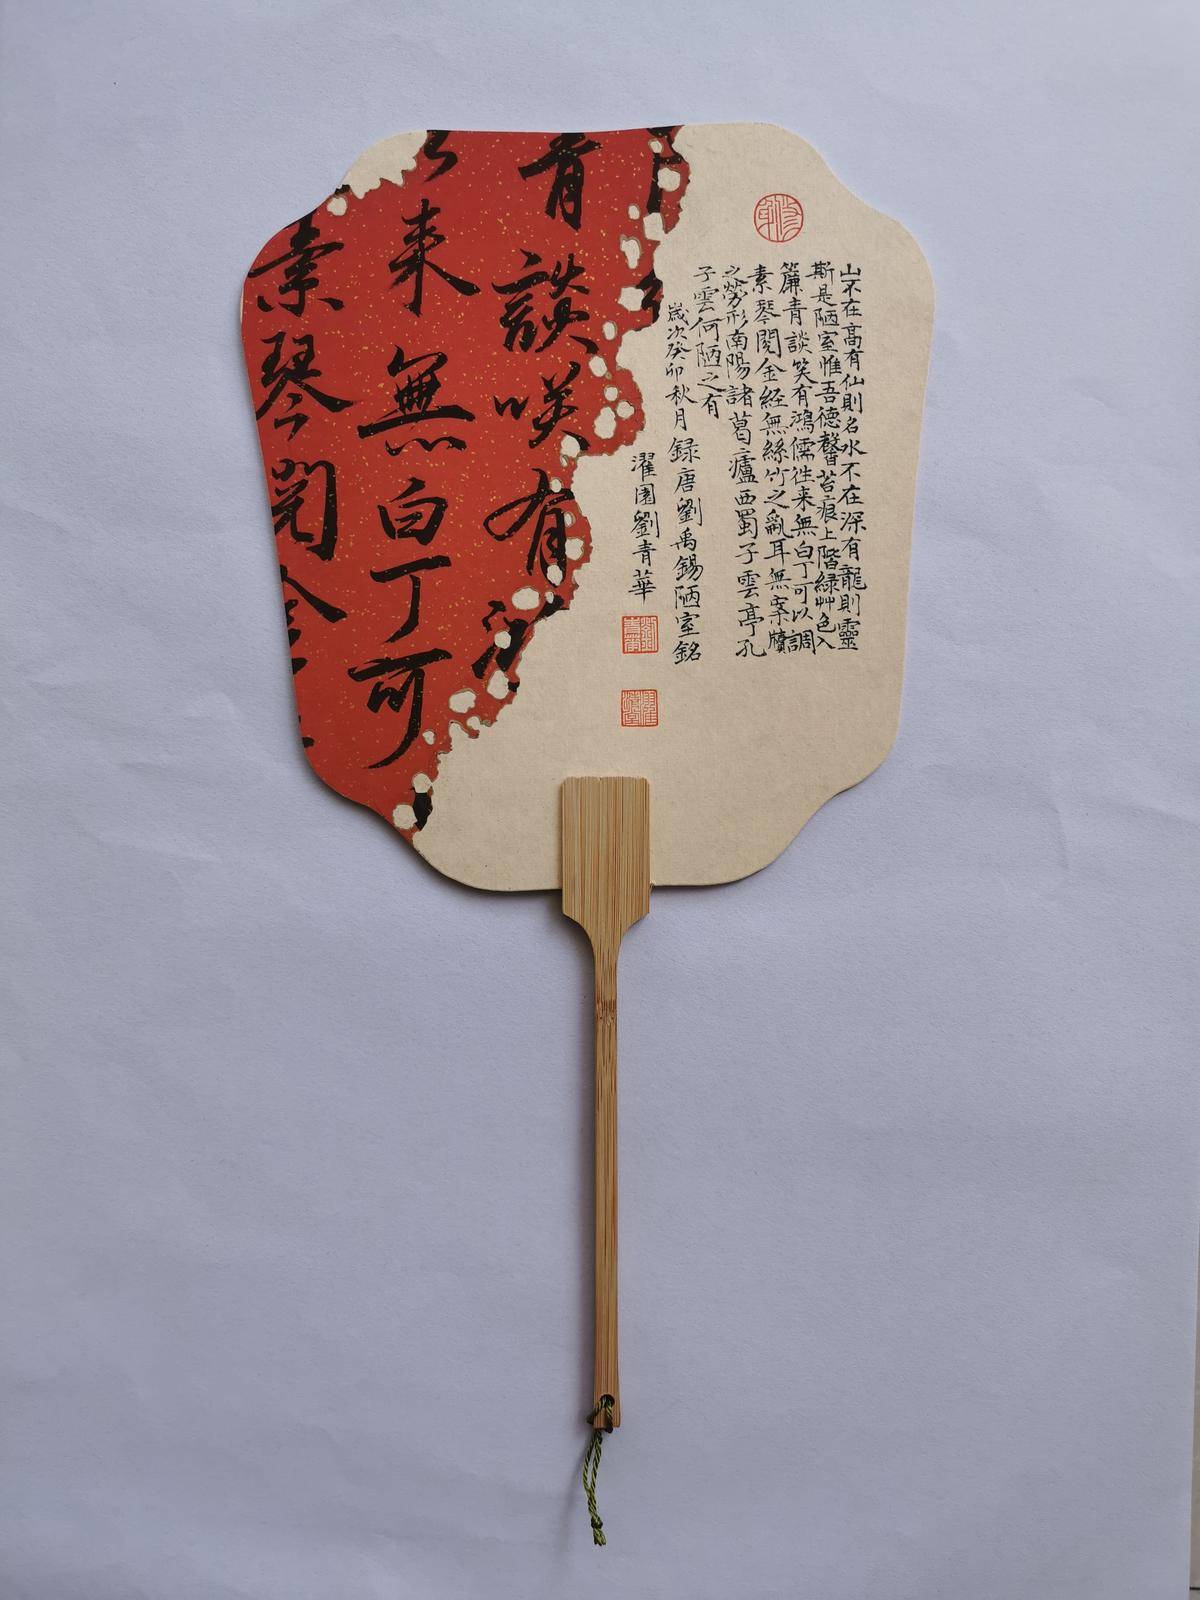 山不在高有仙則名水不在深有龍則靈
斯是陋室惟吾德馨苔痕上階綠艸色入
簾青談笑有鴻儒往来無白丁可以調
素琴閱金経無絲竹之亂耳無案牘
之勞形南陽諸葛廬西蜀子雲亭孔
子雲何陋之有
歲次癸卯秋月録唐劉禹錫陋室銘
濯園劉青華
青談咲有
来無白丁可
素琴閱金